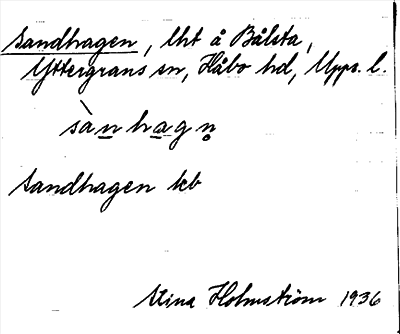 Sandhagen, lht å Bålsta,
Yttergrans sn, Håbo hd, Upps. l.
sànhagn̥
Sandhagen kb
Stina Holmström 1936